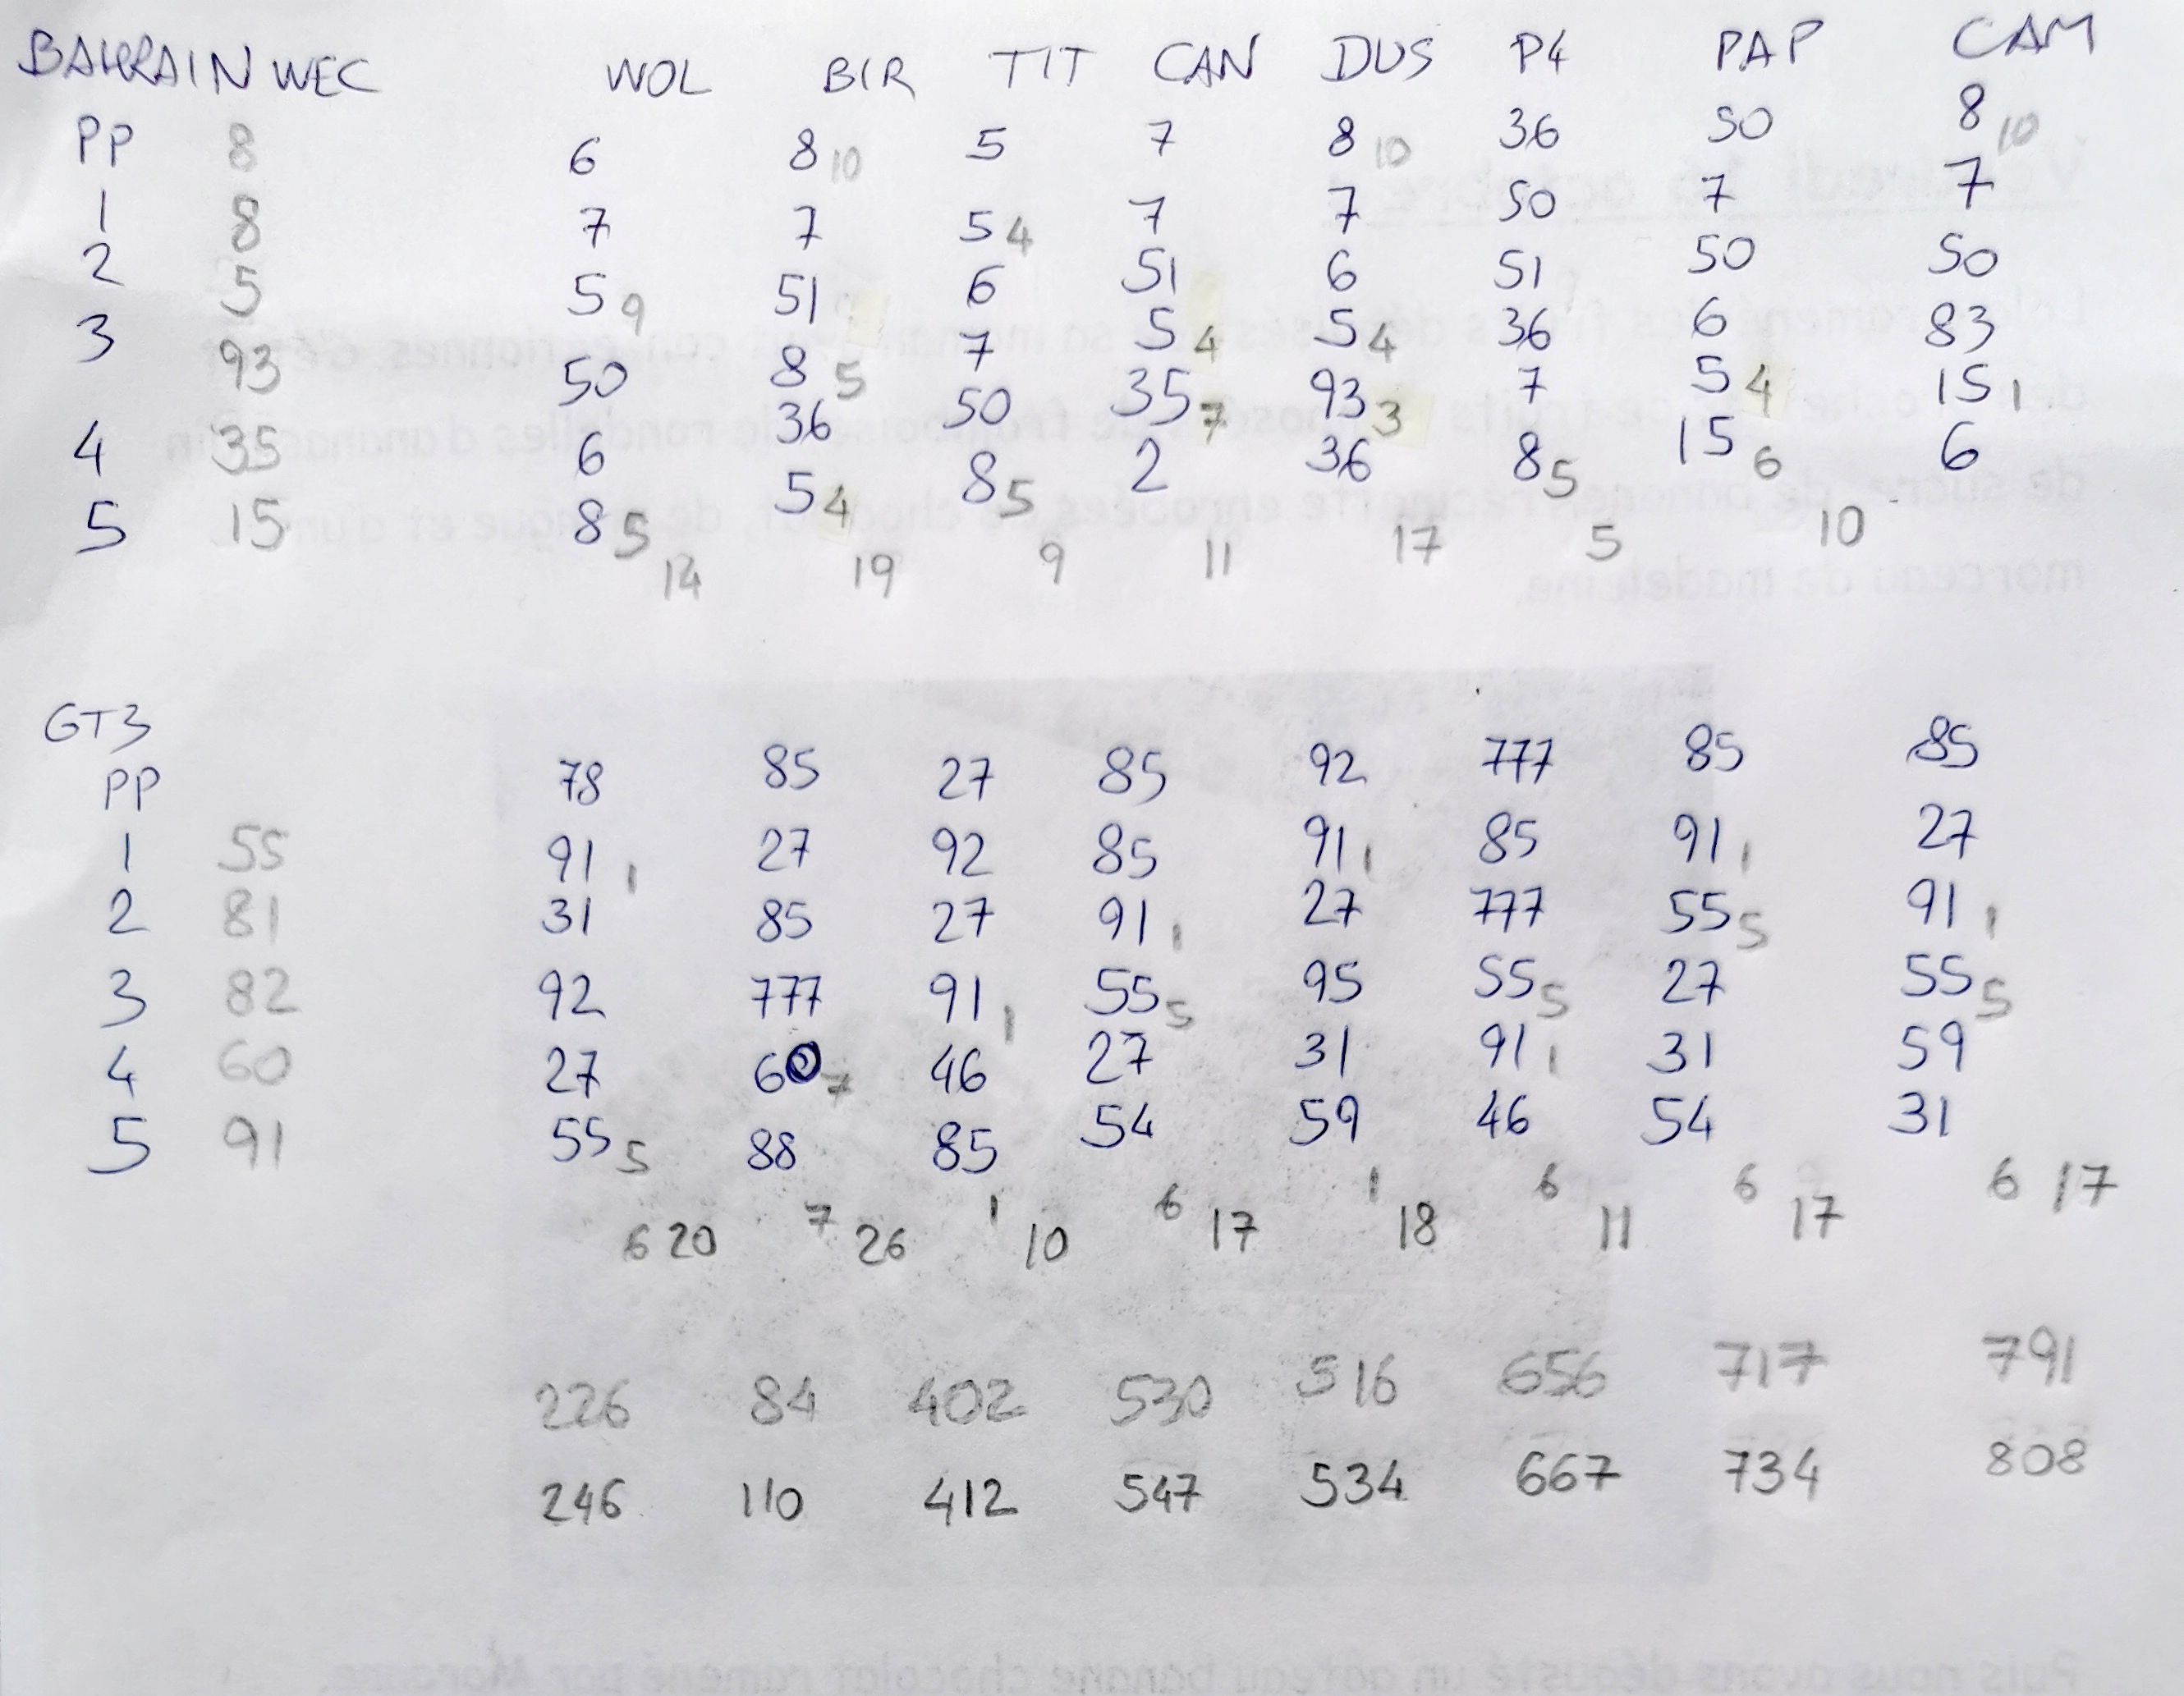 BAHRAIN WEC WOL BIR TIT CAN DUS P4 PAP CAM
PP 8 6 8 10 5 7 8 10 36 50 8 10
1 8 7 7 5 4 7 7 50 7 7
2 5 5 9 51 6 51 6 51 50 50
3 93 50 8 5 7 5 4 5 4 36 6 83
4 35 6 36 50 35 7 93 3 7 5 4 15 1
5 15 8 5 5 4 8 5 2 36 8 5 15 6 6
14 19 9 11 17 5 10
GT3
PP 78 85 27 85 92 777 85 85
1 55 91 1 27 92 85 91 1 85 91 1 27
2 81 31 85 27 91 1 27 777 55 5 91 1
3 82 92 777 91 1 55 5 95 55 5 27 55 5
4 60 27 60 7 46 27 31 91 1 31 59
5 91 55 5 88 85 54 59 46 54 31
6 20 7 26 1 10 6 17 1 18 6 11 6 17 6 17
226 84 402 530 516 656 717 791
246 110 412 547 534 667 734 808
Puis nous avons dégusté un gateau banane chocolat ramené par Morgane.